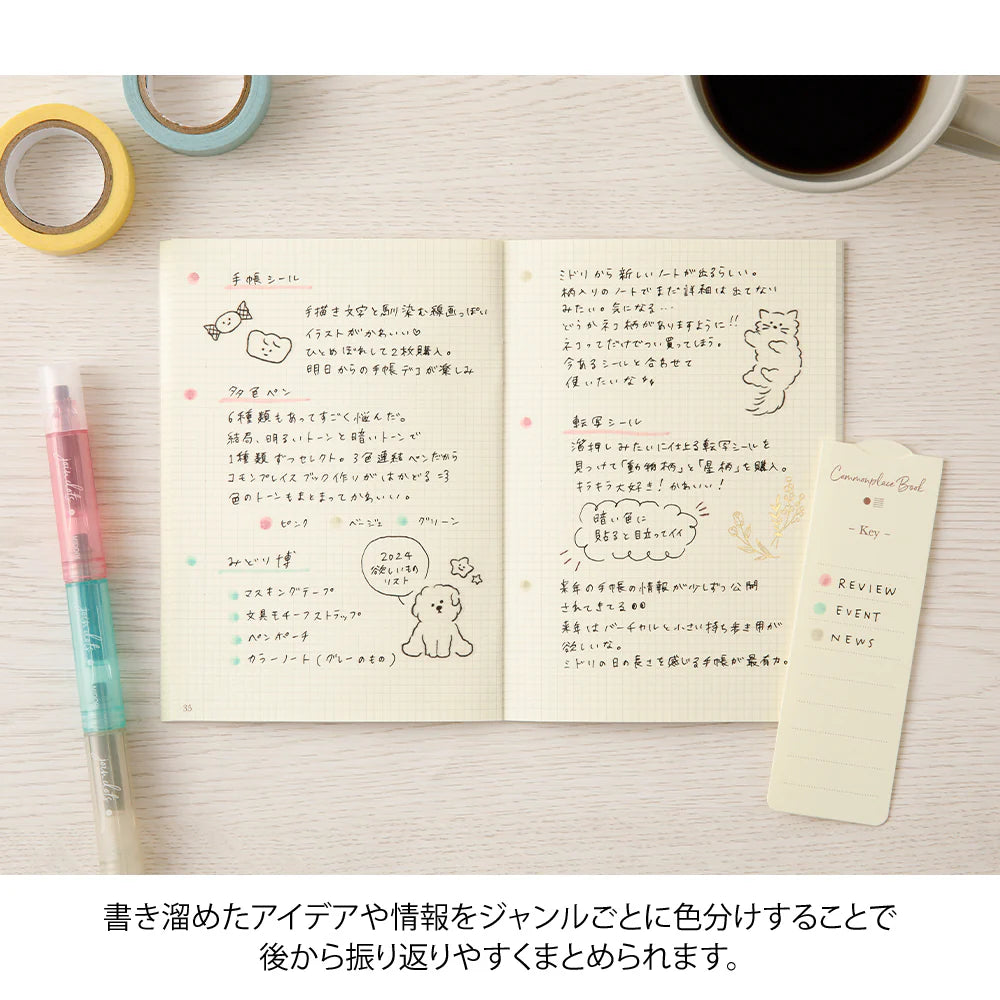 手帳シール
手描き文字と馴染む線画っぽい
イラストがかわいい♡
ひとめぼれして2枚購入。
明日からの手帳デコが楽しみ
多色ペン
6種類もあってすごく悩んだ。
結局、明るいトーンと暗いトーンで
1種類ずつセレクト。3色連結ペンだから
コモンプレイスブック作りがはかどる=3
色のトーンもまとまってかわいい。
ピンク ベージュ グリーン
みどり博
マスキングテープ
文具モチーフストラップ
ペンポーチ
カラーノート(グレーのもの)
2024
欲しいもの
リスト
35
ミドリから新しいノートが出るらしい。
柄入りのノートでまだ詳細は出てない
みたい。気になる…
どうかネコ柄がありますように!!
ネコってだけでつい買ってしまう。
今あるシールと合わせて
使いたいな
転写シール
箔押しみたいに仕上る転写シールを
見つけて「動物柄」と「星柄」を購入。
キラキラ大好き!かわいい!
暗い色に
貼ると目立ってイイ
来年の手帳の情報が少しずつ公開
されてきてる
来年はバーチカルと小さい持ち歩き用が
欲しいな。
ミドリの日の長さを感じる手帳が最有力。
Commonplace Book
- Key -
REVIEW
EVENT
NEWS
join dots
join dots
join dots
書き溜めたアイデアや情報をジャンルごとに色分けすることで
後から振り返りやすくまとめられます。